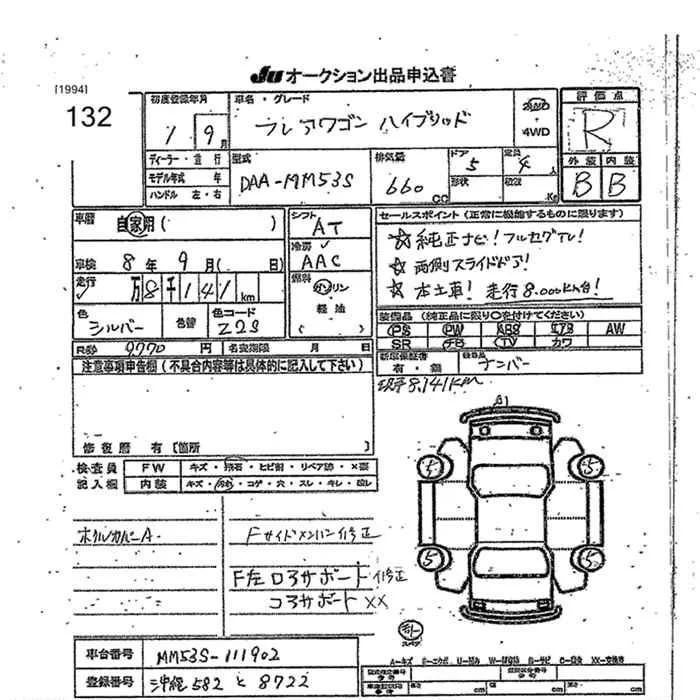 JU オークション出品申込書
[1994]
132
初度登録年月
1 9月
車名・グレード
フレアワゴン ハイブリッド
2WD
・
4WD
評価点
R
外装 内装
B B
ディーラー・並行
モデル年式 年
ハンドル 左・右
型式
DAA-MM53S
排気量
660 cc
ドア
5
形状
定員
4 人
積載
Kg
車歴 自家用 ( )
車検 8年 9月 ( 日)
走行 万 8 千 1 4 1 km
色
シルバー
色替
色コード
Z2S
シフト
AT
冷房
AAC
燃料
ガソリン
・
軽油
( )
セールスポイント (正常に機能するものに限ります)
☆ 純正ナビ! フルセグTV!
☆ 両側スライドドア!
☆ 本土車! 走行8.000km台!
装備品 (純正品に限り○を付けてください)
PS PW ABS エアB AW
SR ナビ TV カワ
新車保証書
有・無
後日品
ナンバー
R券 9770 円 名変期限 月 日
注意事項申告欄 (不具合内容等は具体的に記入して下さい)
現車8.141km
修復歴 有 〔箇所 〕
検査員
記入欄
FW キズ・飛石・ヒビ割・リペア跡・×要
内装 キズ・汚れ・コゲ・穴・スレ・キレ・臭い
ホイルカバーA
Fサイドメンバー修正
F左コアサポート修正
コアサポートXX
A1
5 5
5 5
スペア
車台番号 MM53S-111902
登録番号 沖縄 582 と 8722
A-キズ
cm cm cm